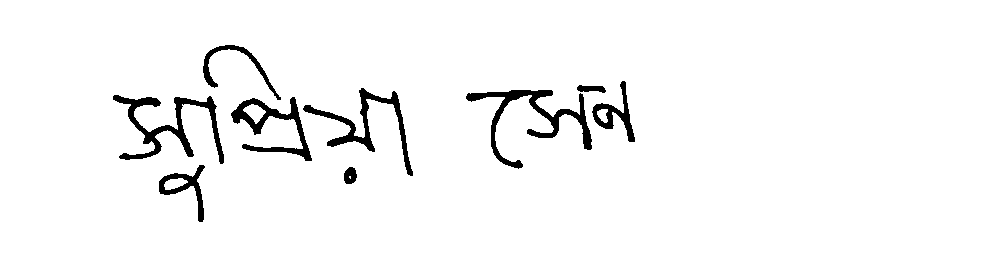 সুপ্রিয়া সেন